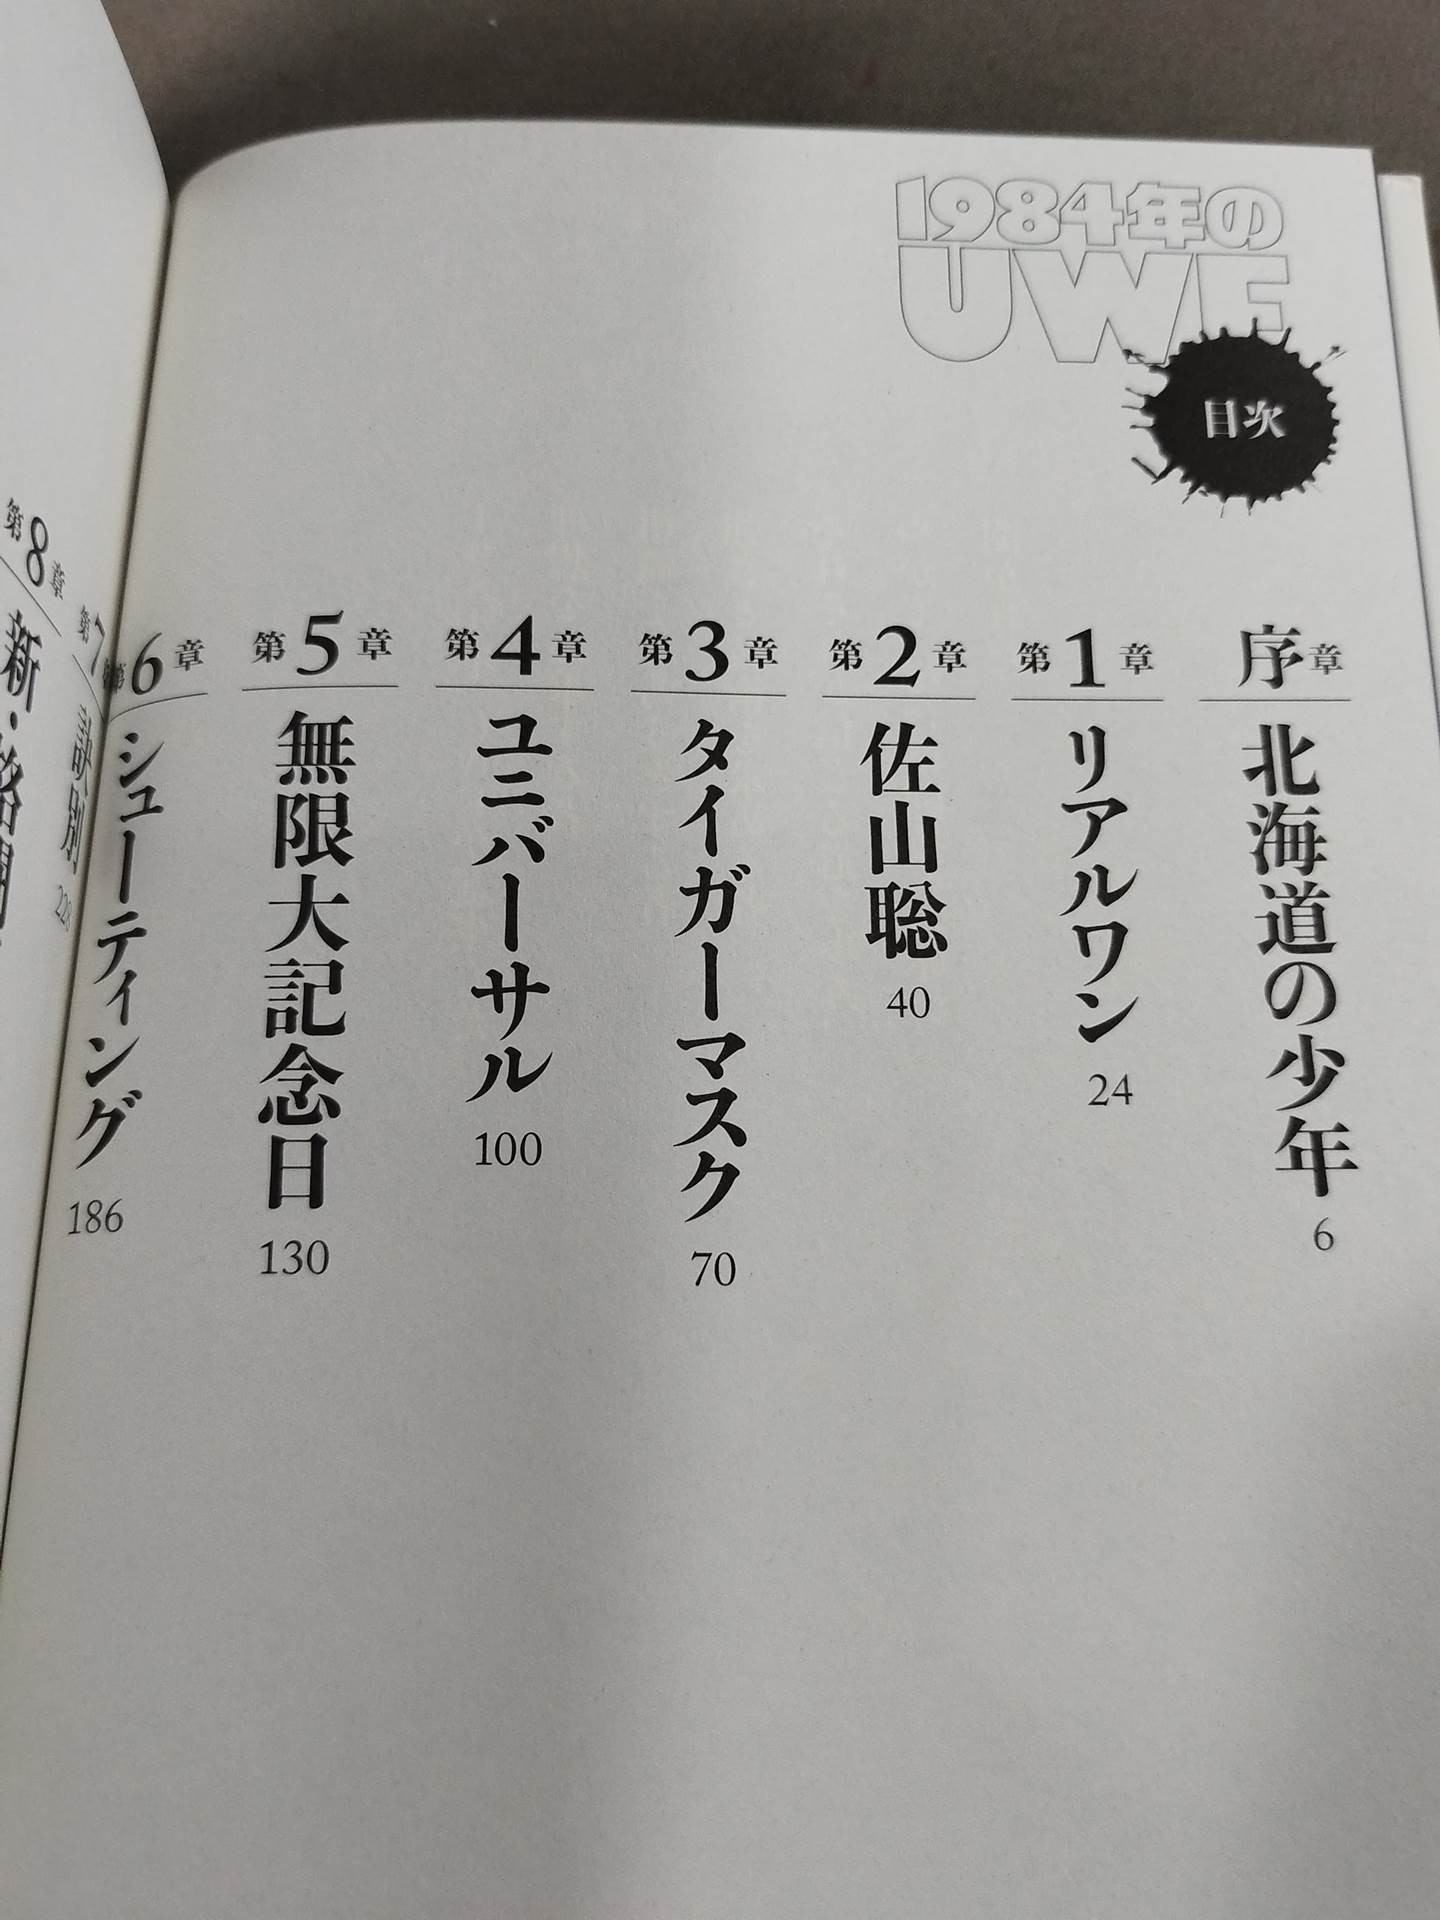 1984年の
UWF
目次
序章
北海道の少年 6
第1章
リアルワン 24
第2章
佐山聡 40
第3章
タイガーマスク 70
第4章
ユニバーサル 100
第5章
無限大記念日 130
第6章
シューティング 186
第7
訣別
第8章
新・格闘